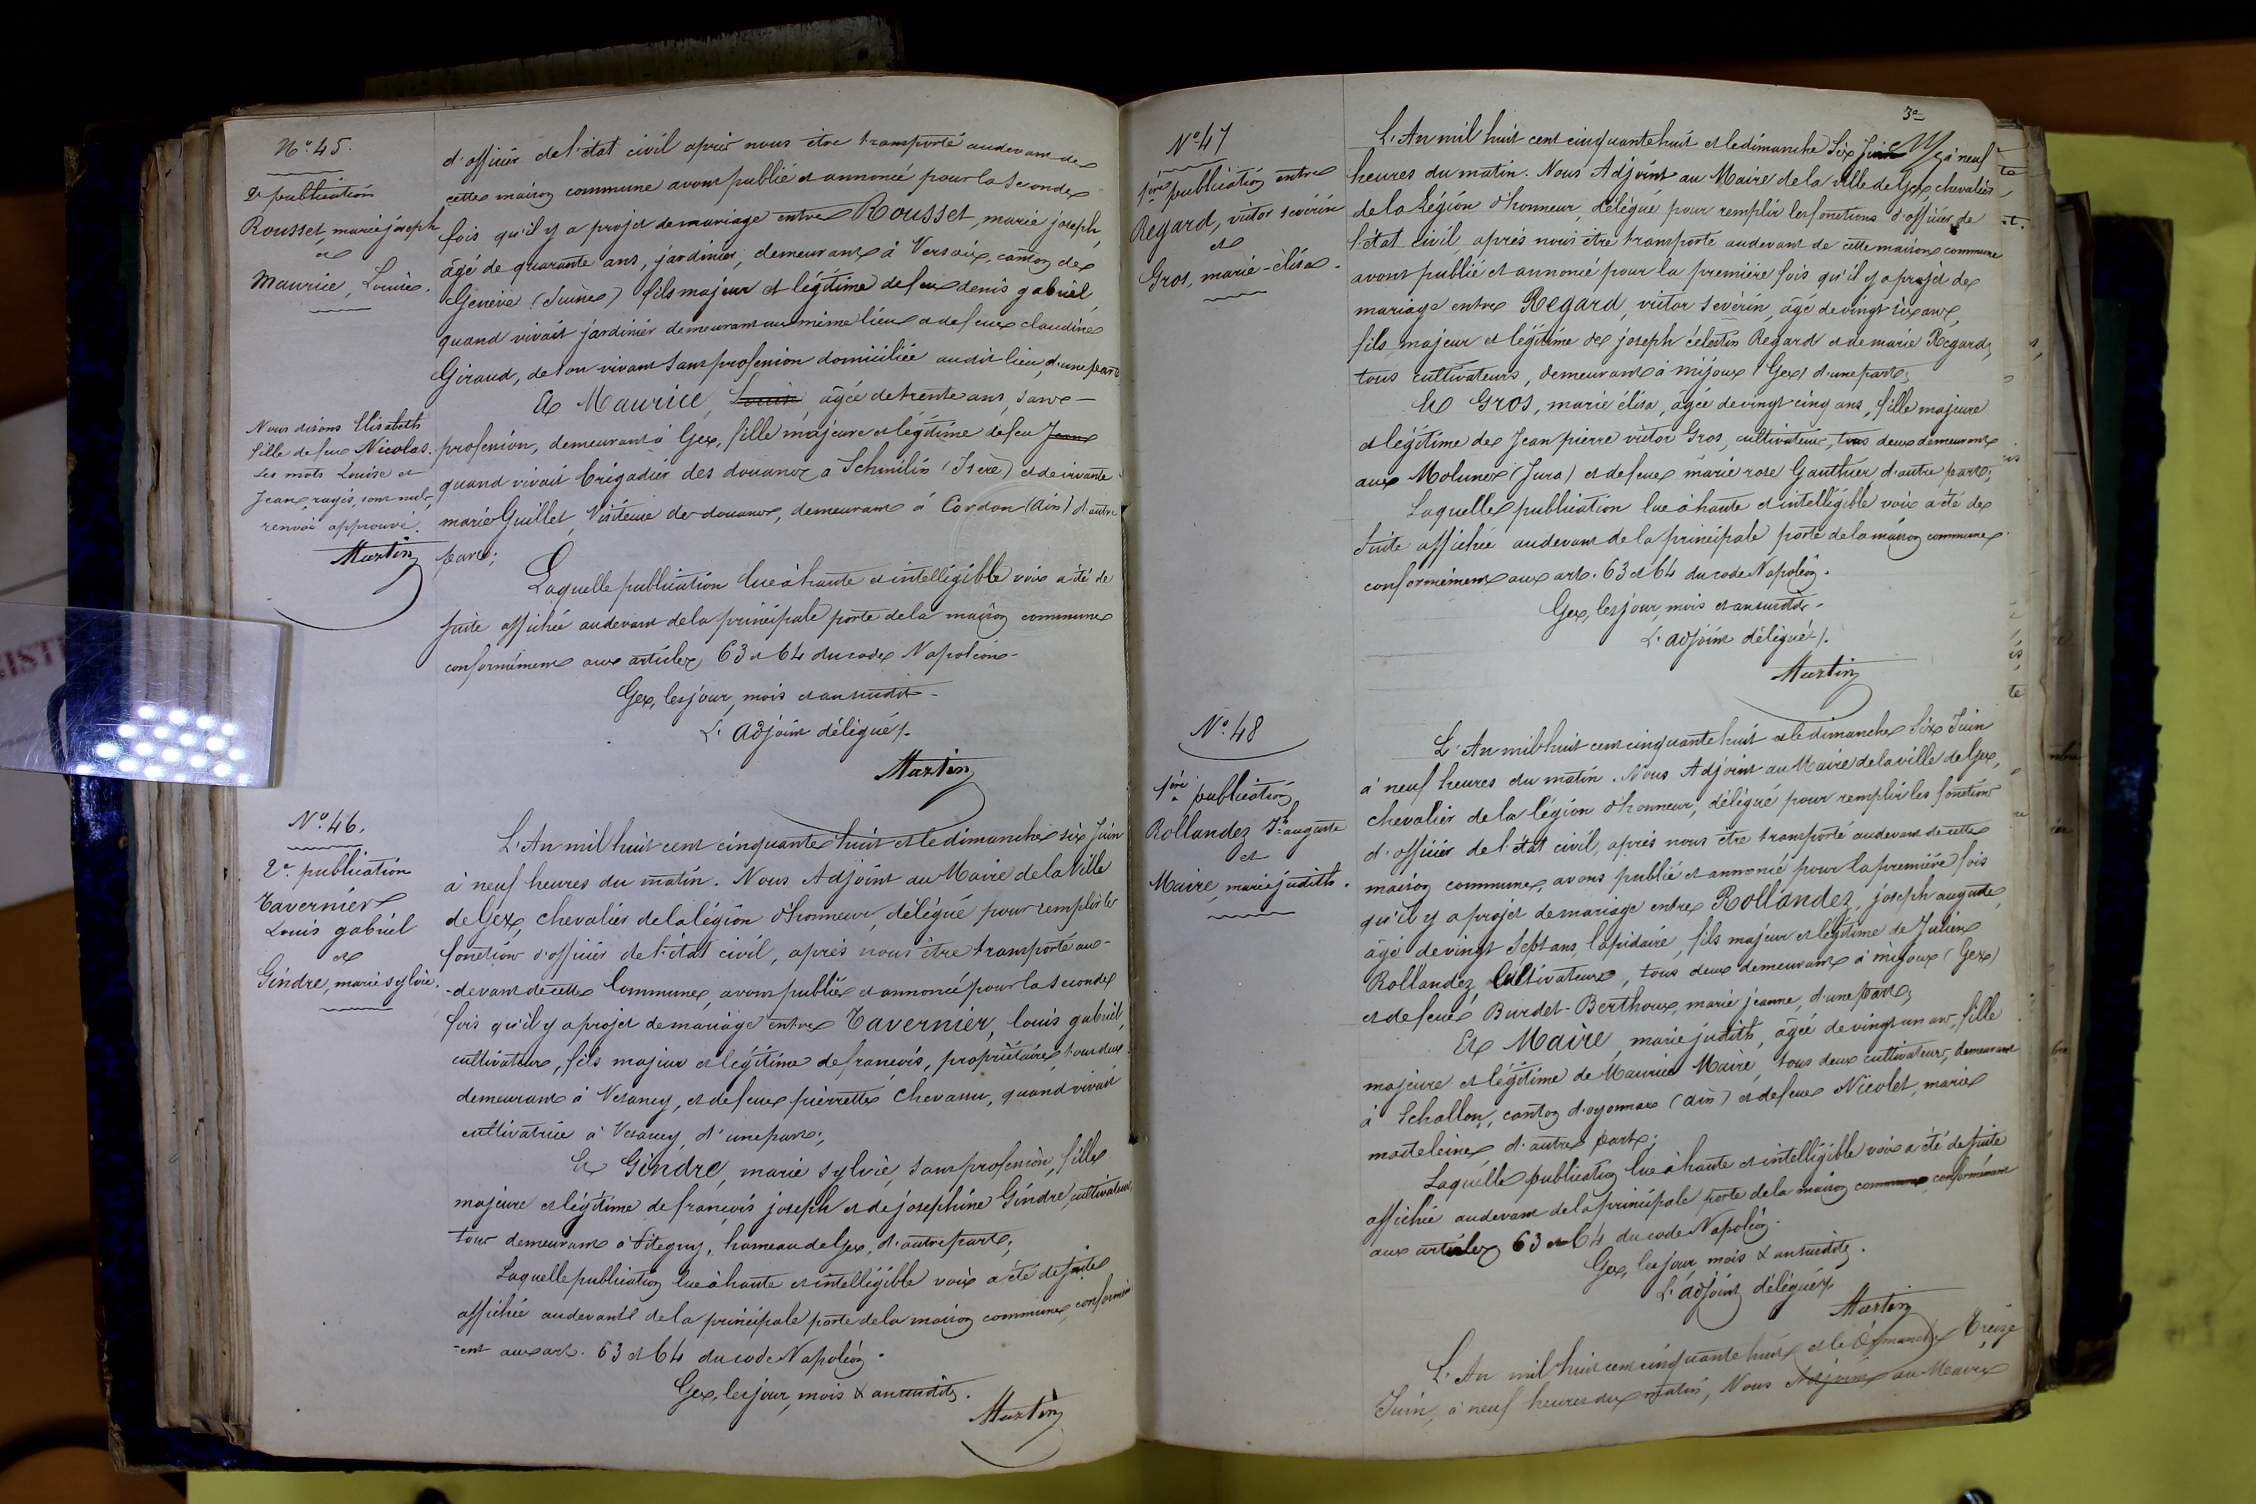 N° 45.
2e publication
Rousset, marie joseph
et
Maurice, Louise.
Nous disons Elisabeth
fille de feu Nicolas.
Les mots Louise et
Jean, rayés, sont nuls,
renvoi approuvé.
Martin
d'officier de l'état civil après nous être transporté audevant de
cette maison commune avons publié et annoncé pour la seconde
fois qu'il y a projet de mariage entre Rousset, marie joseph,
âgé de quarante ans, jardinier, demeurant à Versoix, canton de
Genève (Suisse) fils majeur et légitime de feu denis gabriel,
quand vivait jardinier demeurant au même lieu et de feue claudine
Giraud, de son vivant sans profession domiciliée audit lieu, d'une part
Et Maurice, Louise âgée de trente ans, sans
profession, demeurant à Gex, fille majeure et légitime de feu Jean
quand vivait brigadier des douanes à Schmilin (Isère) et de vivante
marie Guillet, Visiteuse de douanes, demeurant à Cordon (Ain) d'autre
part;
Laquelle publication lue à haute et intelligible voix a été de
suite affichée audevant de la principale porte de la maison commune
conformément aux articles 63 et 64 du code Napoléon.
Gex, les jour, mois et an susdits.
L'adjoint délégué.
Martin
N° 46.
2e publication
Tavernier
Louis gabriel
et
Gindre, marie sylvie.
L'An mil huit cent cinquante huit et le dimanche six Juin
à neuf heures du matin. Nous Adjoint au Maire de la Ville
de Gex, chevalier de la légion d'honneur, délégué pour remplir les
fonctions d'officier de l'état civil, après nous être transporté au-
-devant de cette Commune, avons publié et annoncé pour la seconde
fois qu'il y a projet de mariage entre Tavernier, louis gabriel,
cultivateur, fils majeur et légitime de françois, propriétaire, tous deux
demeurant à Vesancy, et de feue pierrette Chevassu, quand vivait
cultivatrice à Vesancy, d'une part;
Et Gindre, marie sylvie, sans profession, fille
majeure et légitime de françois joseph et de josephine Gindre, cultivateurs,
tous demeurant à Pitegny, hameau de Gex, d'autre part;
Laquelle publication lue à haute et intelligible voix a été de suite
affichée audevant de la principale porte de la maison commune, conformém
-ent aux art. 63 et 64 du code Napoléon.
Gex, les jour, mois & an susdits.
Martin
3e
N° 47
1ère publication entre
Regard, victor sevérin
et
Gros, marie-élisa.
L'An mil huit cent cinquante huit et le dimanche Six Juin à neuf
heures du matin. Nous Adjoint au Maire de la ville de Gex, chevalier
de la Légion d'honneur, délégué pour remplir les fonctions d'officier de
l'état civil, après nous être transporté audevant de cette maison commune
avons publié et annoncé pour la première fois qu'il y a projet de
mariage entre Regard, victor sevérin, âgé de vingt six ans,
fils majeur et légitime de joseph célestin Regard et de marie Regard,
tous cultivateurs, demeurant à mijoux (Gex) d'une part;
Et Gros, marie élisa, âgée de vingt cinq ans, fille majeure
et légitime de Jean pierre victor Gros, cultivateur, tous deux demeurant
aux Molunes (Jura) et de feue marie rose Gauthier, d'autre part;
Laquelle publication lue à haute et intelligible voix a été de
suite affichée audevant de la principale porte de la maison commune
conformément aux art. 63 et 64 du code Napoléon.
Gex, les jour, mois et an susdits.
L'adjoint délégué.
Martin
N° 48
1ère publication
Rollandez Jh auguste
et
Maire, marie judith.
L'An mil huit cent cinquante huit et le dimanche Six Juin
à neuf heures du matin. Nous Adjoint au Maire de la ville de Gex,
chevalier de la légion d'honneur, délégué pour remplir les fonctions
d'officier de l'état civil, après nous être transporté audevant de cette
maison commune, avons publié et annoncé pour la première fois
qu'il y a projet de mariage entre Rollandez, joseph auguste,
âgé de vingt Sept ans, lapidaire, fils majeur et légitime de Julien
Rollandez, Cultivateur, tous deux demeurant à mijoux (Gex)
et de feue Burdet-Berthoux, marie jeanne, d'une part;
Et Maire, marie judith, âgée de vingt un ans, fille
majeure et légitime de Maurice Maire, tous deux cultivateurs, demeurant
à Echallon, canton d'oyonnax (Ain) et de feue Nicolet, marie
madeleine, d'autre part;
Laquelle publication lue à haute et intelligible voix a été de suite
affichée audevant de la principale porte de la maison commune, conformément
aux articles 63 et 64 du code Napoléon.
Gex, les jour, mois & an susdits.
L'adjoint délégué
Martin
L'An mil huit cent cinquante huit et le dimanche treize
Juin, à neuf heures du matin, Nous Adjoint au Maire